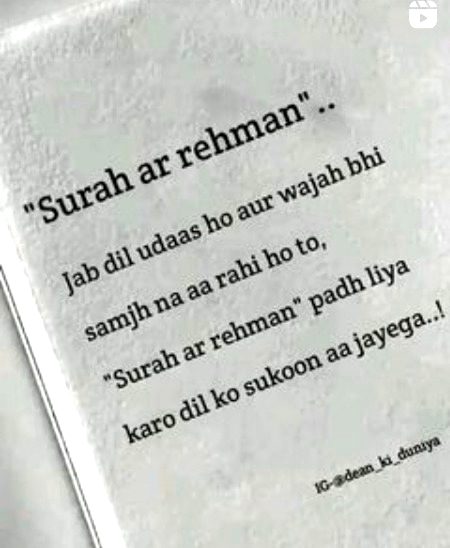 "Surah ar rehman"..
Jab dil udaas ho aur wajah bhi
samjh na aa rahi ho to,
"Surah ar rehman" padh liya
karo dil ko sukoon aa jayega..!
IG-@dean_ki_duniya